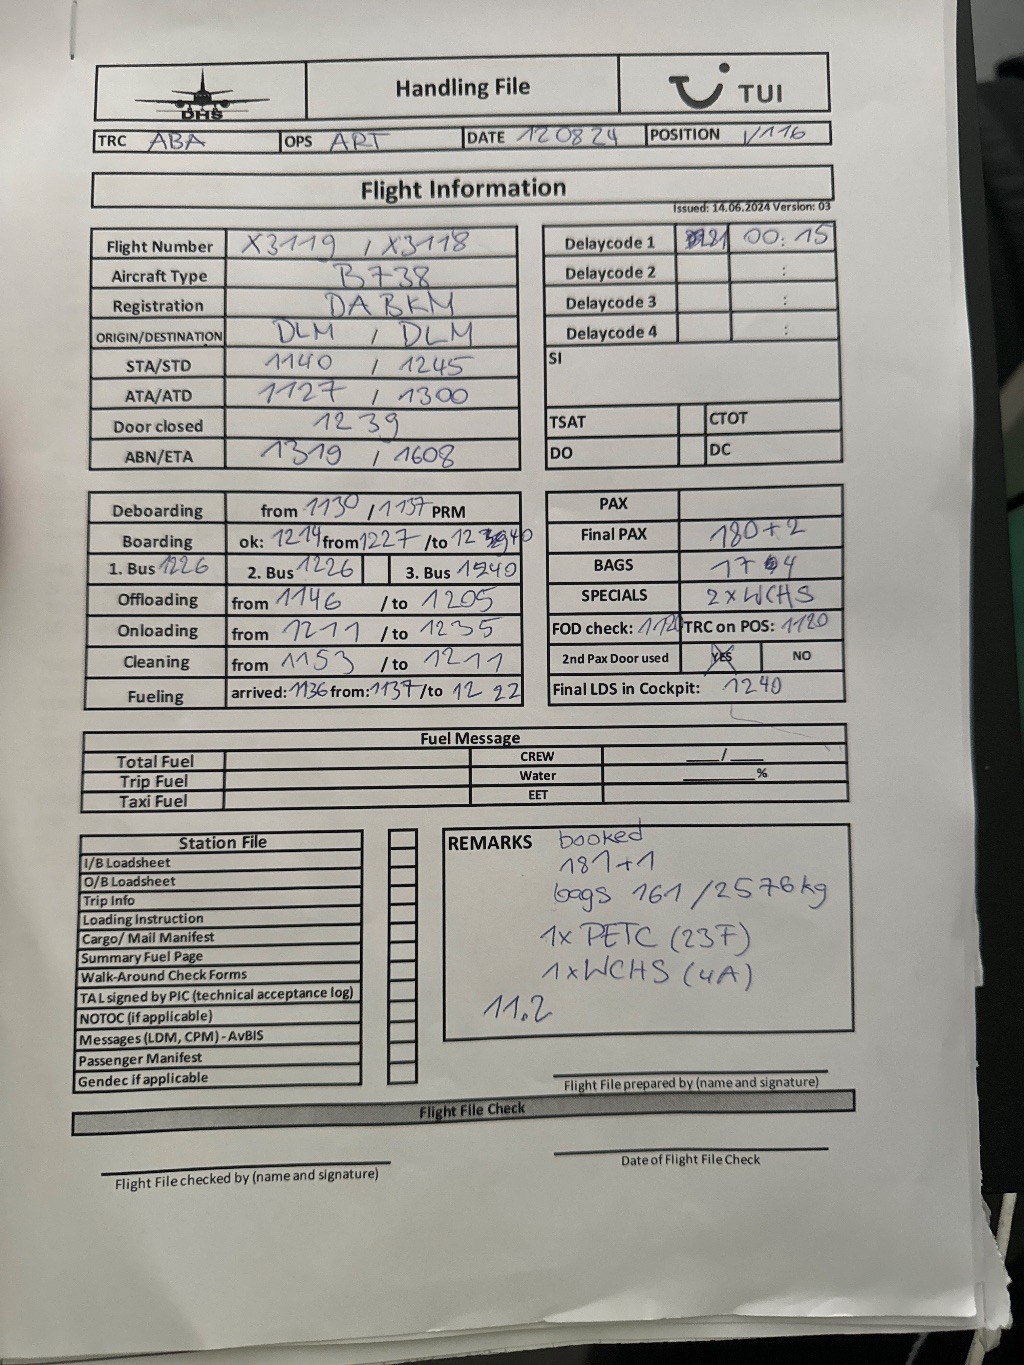 DHS
Handling File
TUI
TRC ABA OPS ART DATE 120824 POSITION V116
Flight Information
Issued: 14.06.2024 Version: 03
Flight Number X3119 / X3118
Aircraft Type B738
Registration DABKM
ORIGIN/DESTINATION DLM / DLM
STA/STD 1140 / 1245
ATA/ATD 1127 / 1300
Door closed 1239
ABN/ETA 1319 / 1608
Delaycode 1 21 00:15
Delaycode 2 :
Delaycode 3 :
Delaycode 4 :
SI
TSAT CTOT
DO DC
Deboarding from 1130 / 1137 PRM
Boarding ok: 1214 from 1227 /to 1240
1. Bus 1226 2. Bus 1226 3. Bus 1240
Offloading from 1146 /to 1205
Onloading from 1211 /to 1235
Cleaning from 1153 /to 1211
Fueling arrived: 1136 from: 1137 /to 12 22
PAX
Final PAX 180+2
BAGS 174
SPECIALS 2xWCHS
FOD check: 1120 TRC on POS: 1120
2nd Pax Door used YES NO
Final LDS in Cockpit: 1240
Fuel Message
Total Fuel CREW ___/___
Trip Fuel Water ______%
Taxi Fuel EET
Station File
I/B Loadsheet
O/B Loadsheet
Trip Info
Loading Instruction
Cargo/ Mail Manifest
Summary Fuel Page
Walk-Around Check Forms
TAL signed by PIC (technical acceptance log)
NOTOC (if applicable)
Messages (LDM, CPM) - AvBIS
Passenger Manifest
Gendec if applicable
REMARKS booked
181+1
bags 161 / 2576kg
1x PETC (23F)
1xWCHS (4A)
11.2
Flight File prepared by (name and signature)
Flight File Check
Flight File checked by (name and signature)
Date of Flight File Check